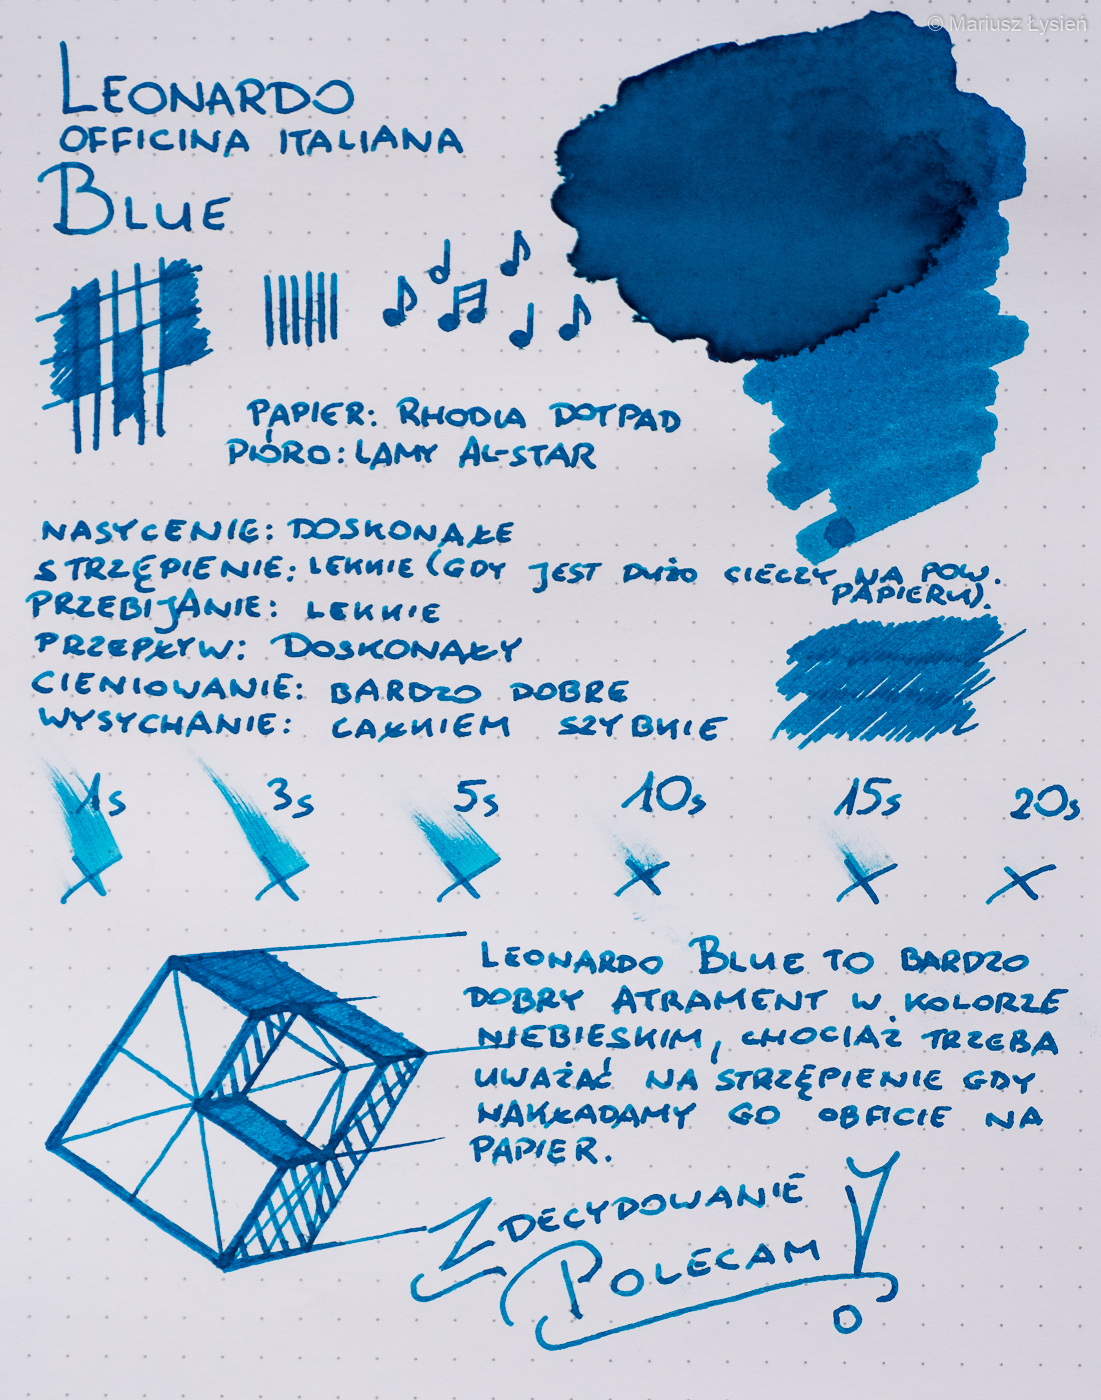 © Mariusz Łysień
LEONARDO
OFFICINA ITALIANA
BLUE
PAPIER: RHODIA DOTPAD
PIÓRO: LAMY AL-STAR
NASYCENIE: DOSKONAŁE
STRZĘPIENIE: LEKKIE (GDY JEST DUŻO CIECZY NA POW.
PAPIERU).
PRZEBIJANIE: LEKKIE
PRZEPŁYW: DOSKONAŁY
CIENIOWANIE: BARDZO DOBRE
WYSYCHANIE: CAŁKIEM SZYBKIE
1s 3s 5s 10s 15s 20s
LEONARDO BLUE TO BARDZO
DOBRY ATRAMENT W KOLORZE
NIEBIESKIM, CHOCIAŻ TRZEBA
UWAŻAĆ NA STRZĘPIENIE GDY
NAKŁADAMY GO OBFICIE NA
PAPIER.
ZDECYDOWANIE
POLECAM!